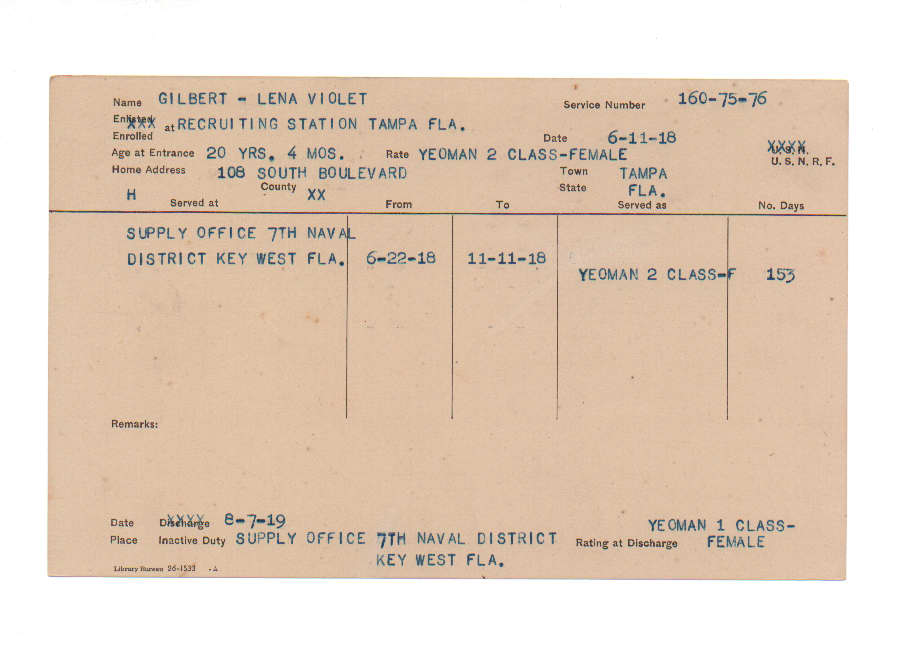 Name GILBERT - LENA VIOLET Service Number 160-75-76
Enlisted XXX at RECRUITING STATION TAMPA FLA.
Enrolled Date 6-11-18
Age at Entrance 20 YRS. 4 MOS. Rate YEOMAN 2 CLASS-FEMALE XXXX U.S.N.
U. S. N. R. F.
Home Address 108 SOUTH BOULEVARD Town TAMPA
H County XX State FLA.
Served at From To Served as No. Days
SUPPLY OFFICE 7TH NAVAL
DISTRICT KEY WEST FLA. 6-22-18 11-11-18
YEOMAN 2 CLASS-F 153
Remarks:
Date Discharge XXXX 8-7-19 YEOMAN 1 CLASS-
Place Inactive Duty SUPPLY OFFICE 7TH NAVAL DISTRICT Rating at Discharge FEMALE
KEY WEST FLA.
Library Bureau 26-1533 -A